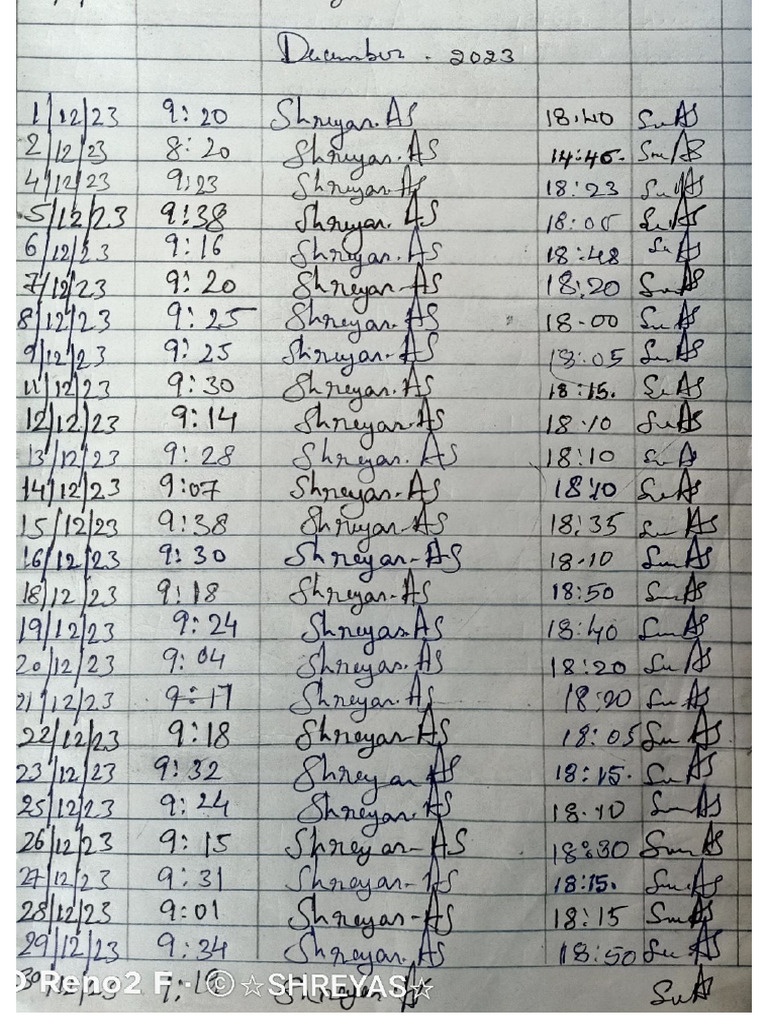 December. 2023
1/12/23 9:20 Shreyas.AS 18:40 AS
2/12/23 8:20 Shreyas.AS 14:45. AS
4/12/23 9:23 Shreyas.AS 18:23 AS
5/12/23 9:38 Shreyas.AS 18:05 AS
6/12/23 9:16 Shreyas.AS 18:48 AS
7/12/23 9:20 Shreyas-AS 18:20 AS
8/12/23 9:25 Shreyas.AS 18-00 AS
9/12/23 9:25 Shreyas-AS 18:05 AS
11/12/23 9:30 Shreyas.AS 18:15. AS
12/12/23 9:14 Shreyas.AS 18.10 AS
13/12/23 9:28 Shreyas.AS 18:10
14/12/23 9:07 Shreyas-AS 18:10 AS
15/12/23 9:38 Shreyas-AS 18:35 AS
16/12/23 9:30 Shreyas-AS 18-10 AS
18/12/23 9:18 Shreyas-AS 18:50 AS
19/12/23 9:24 Shreyas.AS 18:40 AS
20/12/23 9:04 Shreyas.AS 18:20 AS
21/12/23 9:17 Shreyas.AS 18:20 AS
22/12/23 9:18 Shreyas-AS 18:05 AS
23/12/23 9:32 Shreyas AS 18:15. AS
25/12/23 9:24 Shreyas.AS 18.10 AS
26/12/23 9:15 Shreyas-AS 18:30 AS
27/12/23 9:31 Shreyas-AS 18:15. AS
28/12/23 9:01 Shreyas-AS 18:15 AS
29/12/23 9:34 Shreyas.AS 18:50 AS
30/12/23 Shreyas.A AS
Reno2 F · © ☆SHREYAS☆